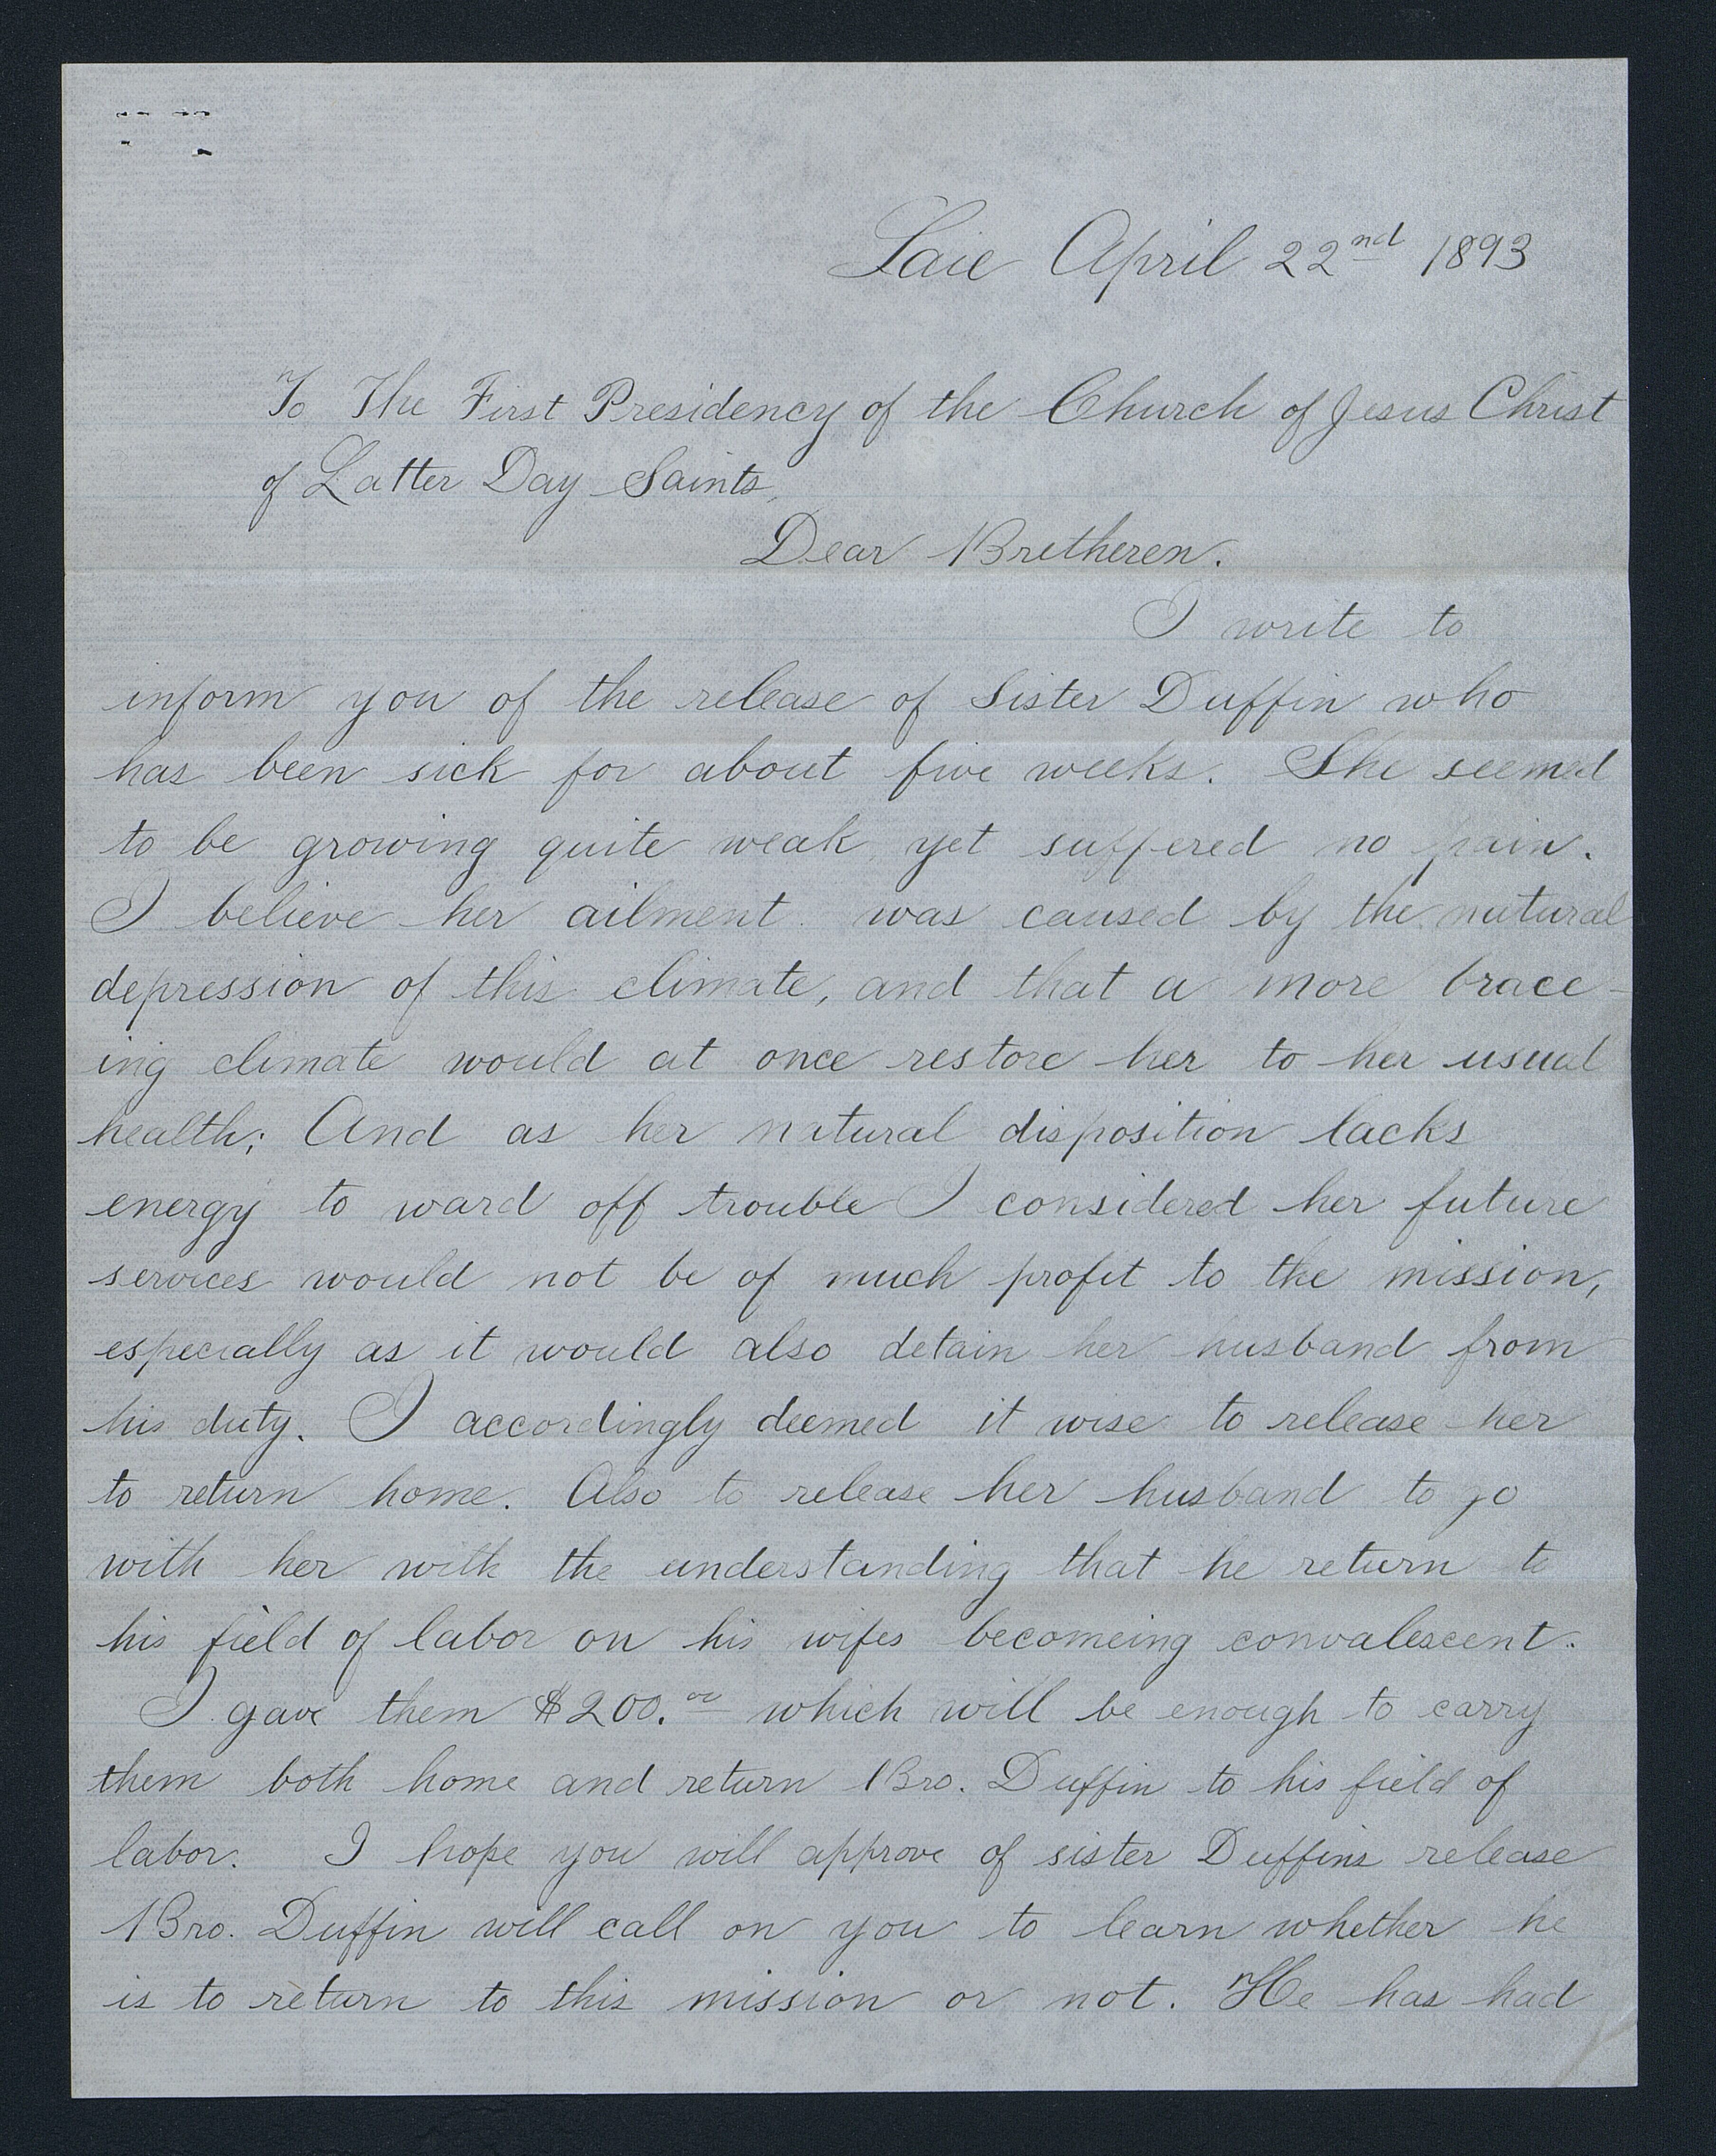 Laie April 22nd 1893
To The First Presidency of the Church of Jesus Christ
of Latter Day Saints,
Dear Bretheren.
I write to
inform you of the release of Sister Duffin who
has been sick for about five weeks. She seemed
to be growing quite weak yet suffered no pain.
I believe her ailment was caused by the natural
depression of this climate, and that a more brace-
ing climate would at once restore her to her usual
health; And as her natural disposition lacks
energy to ward off trouble I considered her future
services would not be of much profit to the mission,
especially as it would also detain her husband from
his duty. I accordingly deemed it wise to release her
to return home. Also to release her husband to go
with her with the understanding that he return to
his field of labor on his wifes becomeing convalescent.
I gave them $200.00 which will be enough to carry
them both home and return Bro. Duffin to his field of
labor. I hope you will approve of sister Duffins release
Bro. Duffin will call on you to learn whether he
is to return to this mission or not. He has had